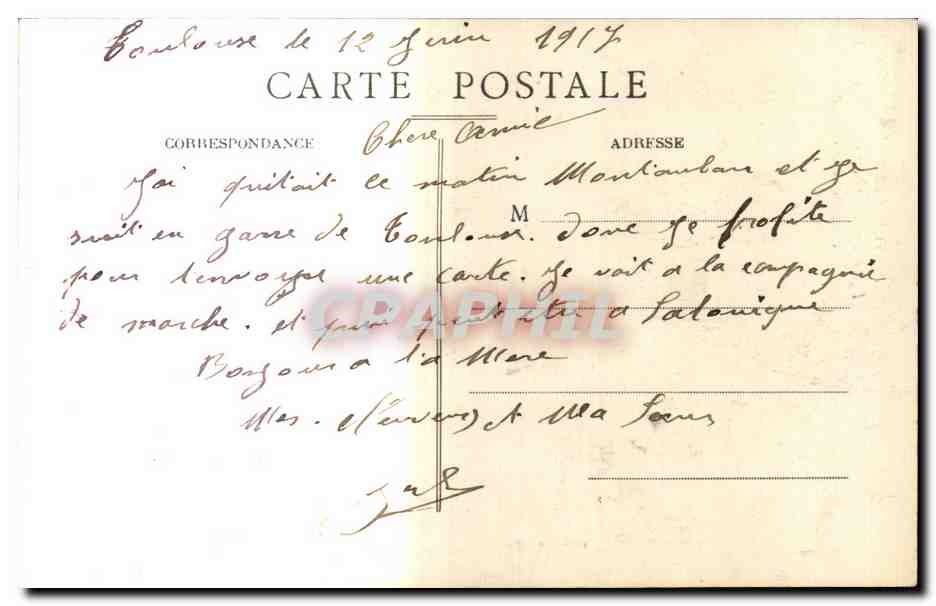 Toulouse le 12 Juin 1917
CARTE POSTALE
CORRESPONDANCE
Chere Amie
ADRESSE
J'ai quitait ce matin Montauban et Je
M
suit en garre de Toulouse. donc Je profite
pour t'envoyer une carte. Je vait a la compagnie
de marche. et puis peut etre a Salonique
CPARPHIL
Bonjour a ta Mere
Mes et Ma Soeur